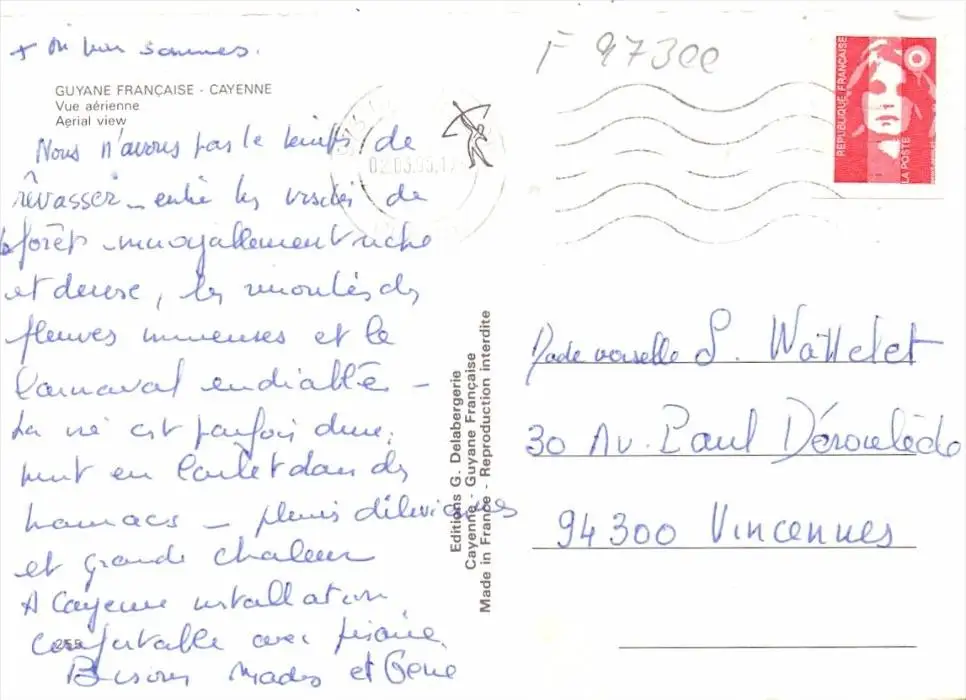 + où nous sommes.
GUYANE FRANÇAISE - CAYENNE
Vue aérienne
Aerial view
Nous n'avons pas le temps de
rêvasser - entre les visites de
forêt incroyablement riche
et dense, les montées des
fleuves immenses et le
Carnaval endiablé -
La vie est parfois dure,
nuit en Carbet dans des
hamacs - pluies diluviennes
et grande chaleur
A Cayenne installation
confortable avec piscine.
Bisous Mados et Gene
259
Editions G. Delabergerie
Cayenne - Guyane Française
Made in France - Reproduction interdite
F 97300
RÉPUBLIQUE FRANÇAISE
LA POSTE
Mademoiselle S. Wattelet
30 Av. Paul Déroulède
94300 Vincennes